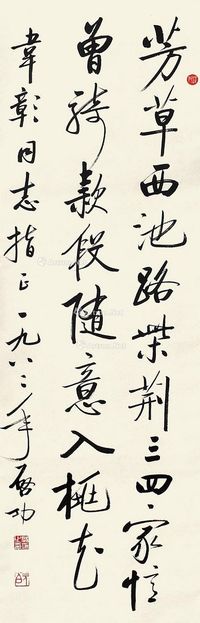 芳草西池路柴荆三四家忆
曾骑款段随意入桃花
韋彰同志指正一九八二年启功